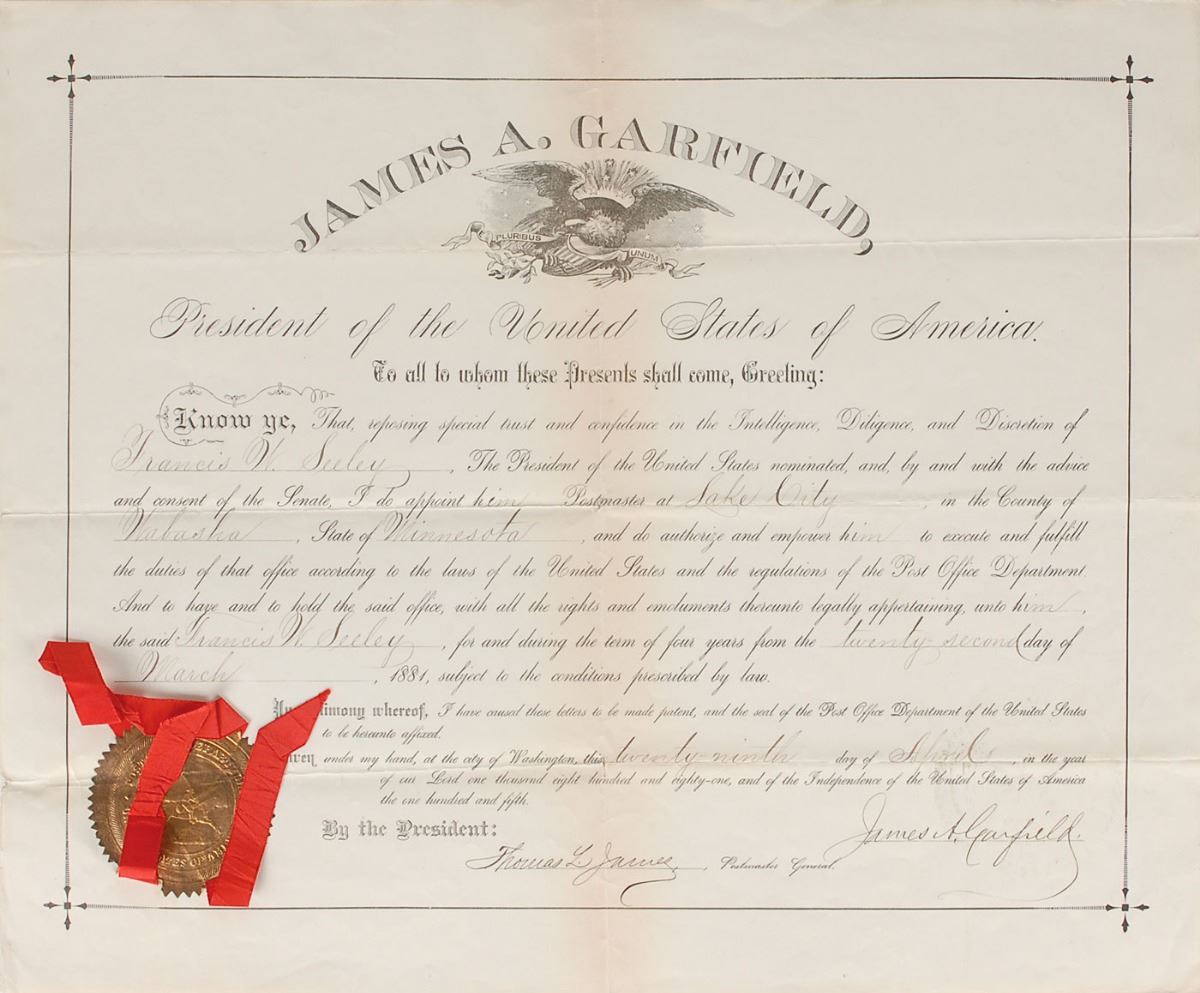 JAMES A. GARFIELD,
E PLURIBUS UNUM
President of the United States of America.
To all to whom these Presents shall come, Greeting:
Know ye, That, reposing special trust and confidence in the Intelligence, Diligence, and Discretion of
Francis W. Seeley, The President of the United States nominated, and, by and with the advice
and consent of the Senate, I do appoint him Postmaster at Lake City, in the County of
Wabasha, State of Minnesota, and do authorize and empower him to execute and fulfill
the duties of that office according to the laws of the United States and the regulations of the Post Office Department.
And to have and to hold the said office, with all the rights and emoluments thereunto legally appertaining, unto him,
the said Francis W. Seeley, for and during the term of four years from the twenty-second day of
March, 1881, subject to the conditions prescribed by law.
In testimony whereof, I have caused these letters to be made patent, and the seal of the Post Office Department of the United States
to be hereunto affixed.
under my hand, at the city of Washington, this twenty-ninth day of April, in the year
of our Lord one thousand eight hundred and eighty-one, and of the Independence of the United States of America
the one hundred and fifth.
By the President:
James A. Garfield.
Thomas L. James, Postmaster General.